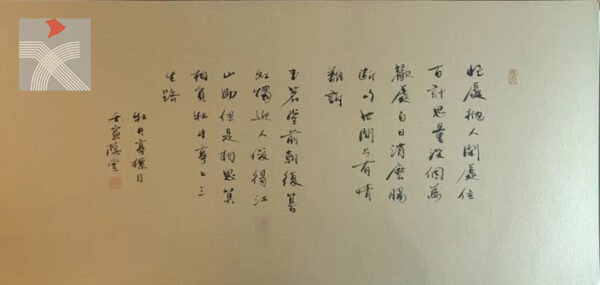 忙處抛人閒處住
百計思量沒個為
歡處白日消磨腸
斷句世間只有情
難訴
玉茗堂前朝後暮
紅燭迎人俊得江
山助但是相思莫
相負牡丹亭上三
生路
牡丹亭標目